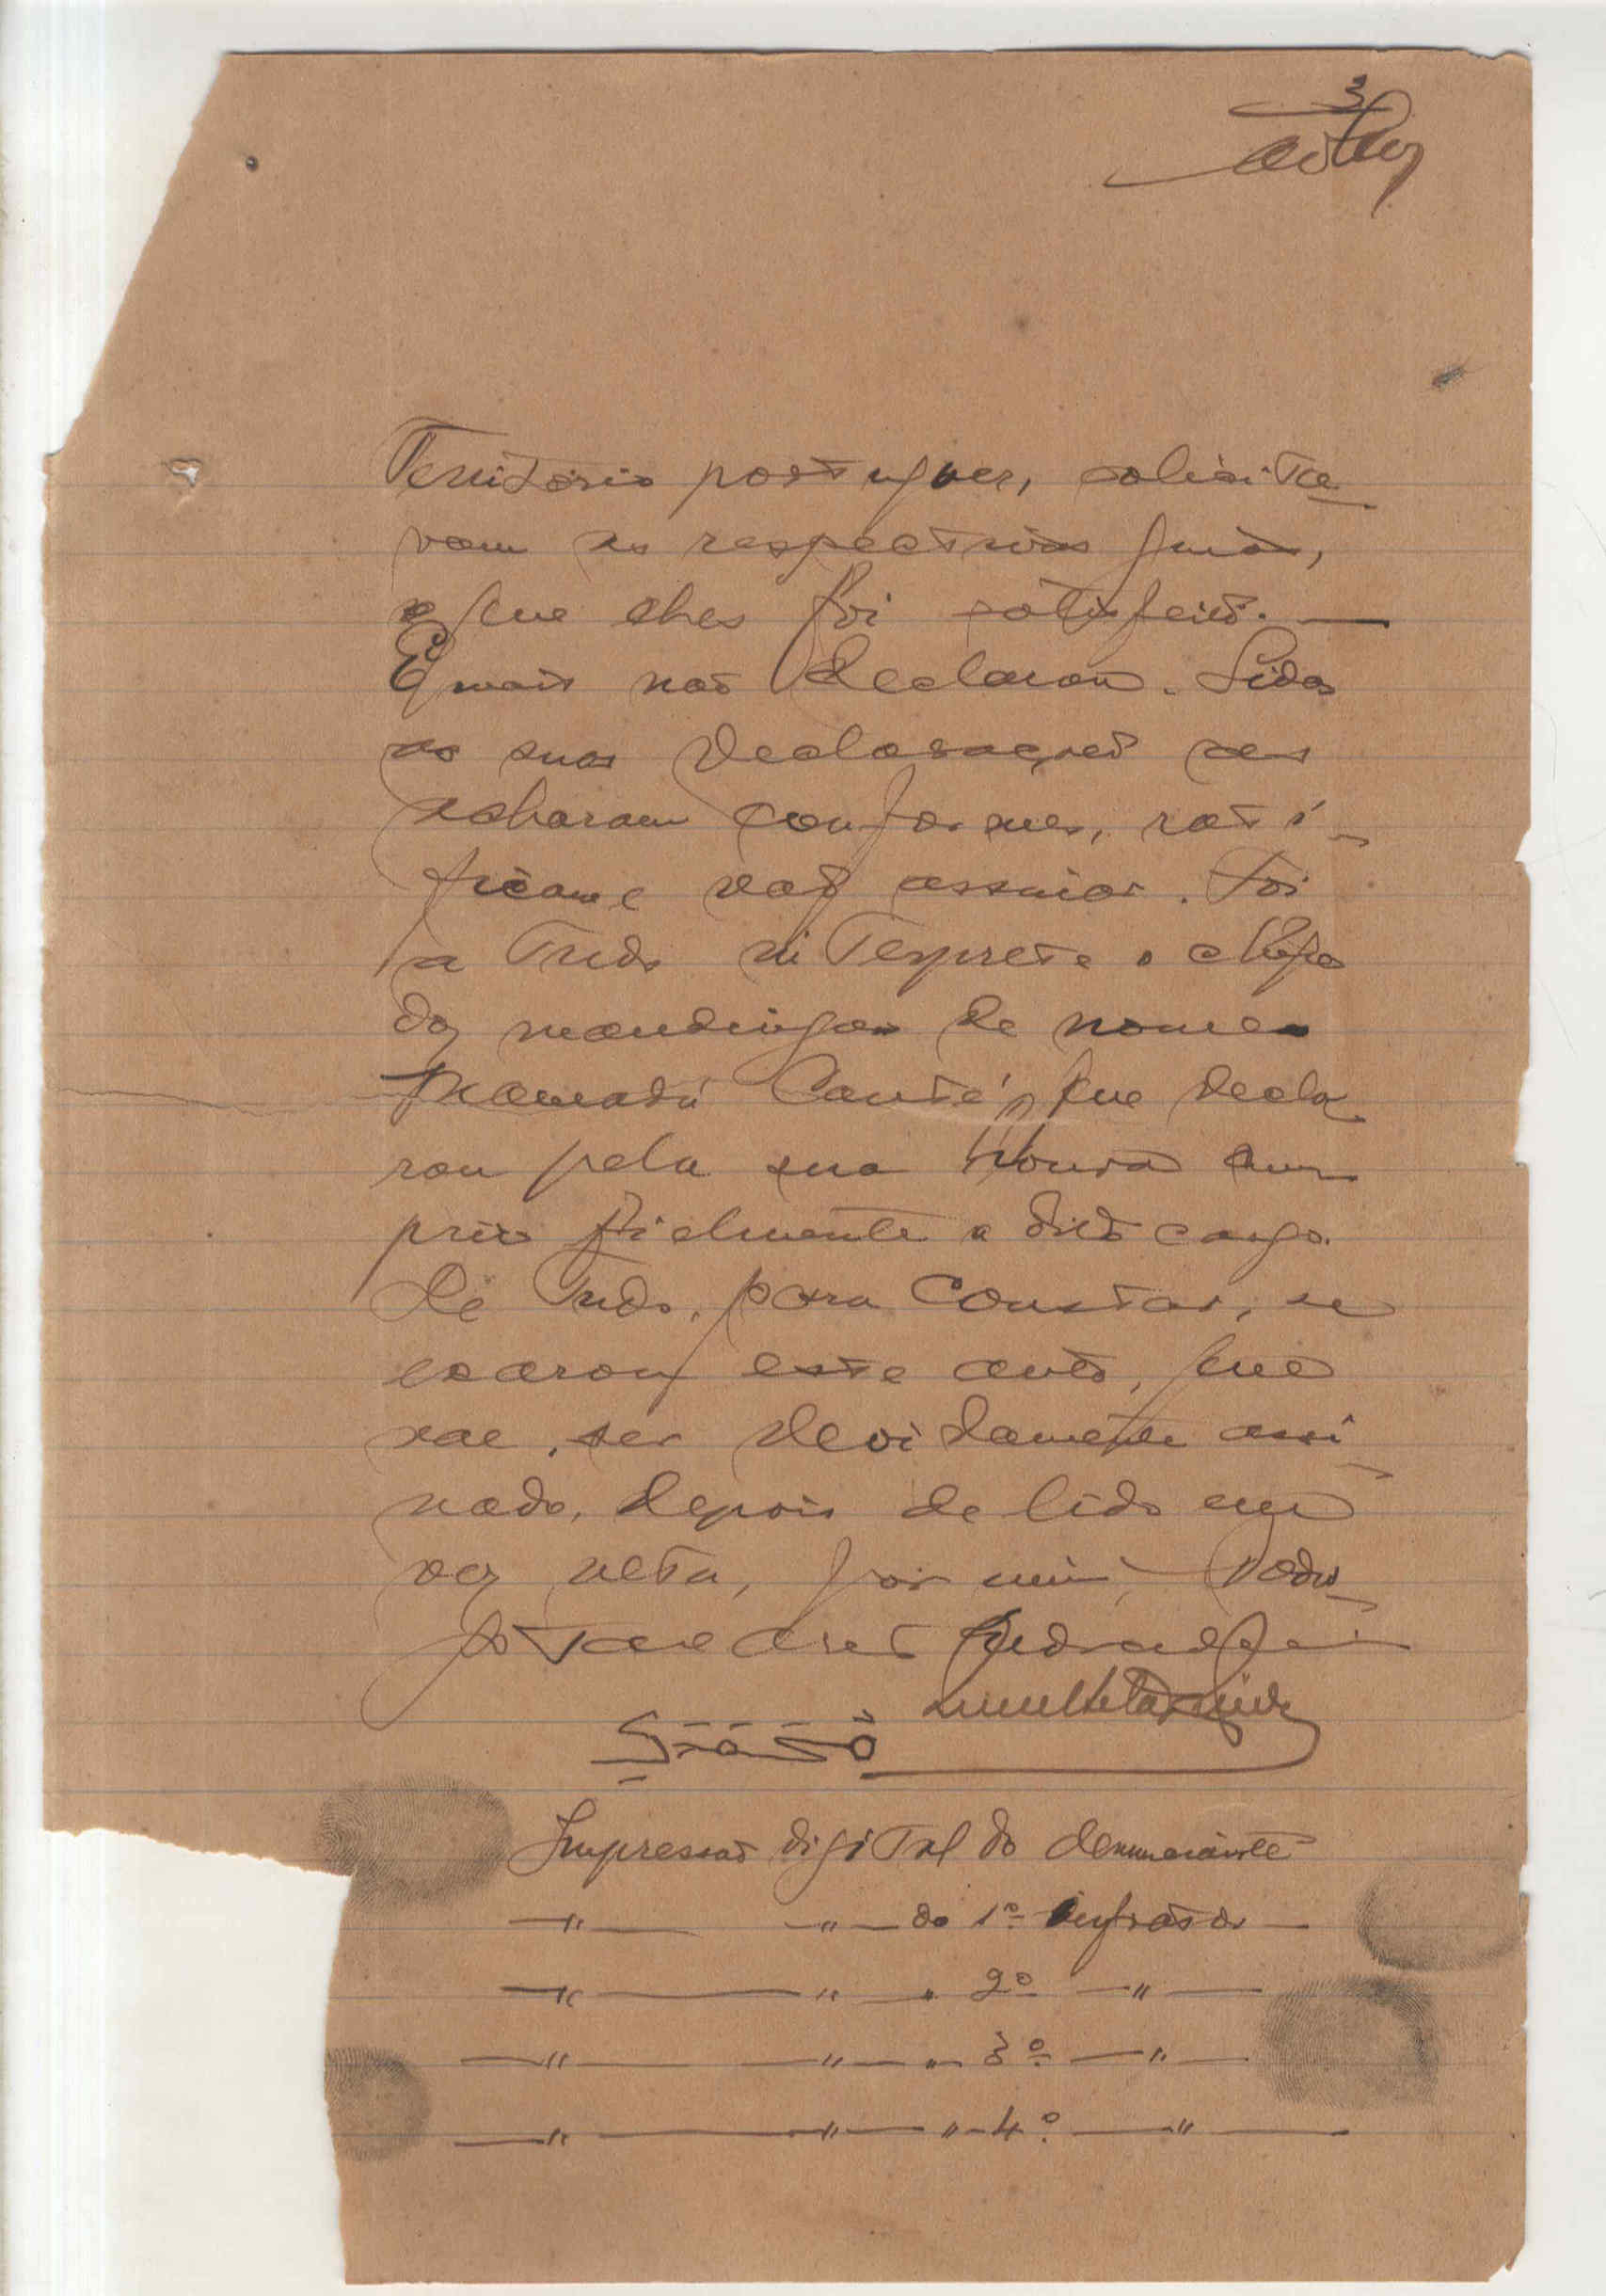 3
Territorio portuguez, solicita-
vam as respectivas guias,
o que lhes foi satisfeito. —
E mais não declarou. Lidas
as suas declarações as
acharam conformes, rati-
ficam e vão assinar. Foi
a tudo interprete o chefe
dos mandingas de nome
Mamadú Canté, que decla-
rou pela sua honra cum-
prir fielmente o dito cargo.
De tudo, para constar, se
exarou este auto, que
vae ser devidamente assi-
nado, depois de lido em
voz alta, por mim,
Tavares
Impressão digital do denunciante
—"— —"— do 1º infrator —
—"— " — " 2º —"—
—"— —"— " 3º —"—
—"— " — " 4º —"—